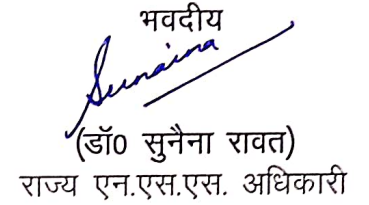 भवदीय
Sunaina
(डॉ0 सुनैना रावत)
राज्य एन.एस.एस. अधिकारी